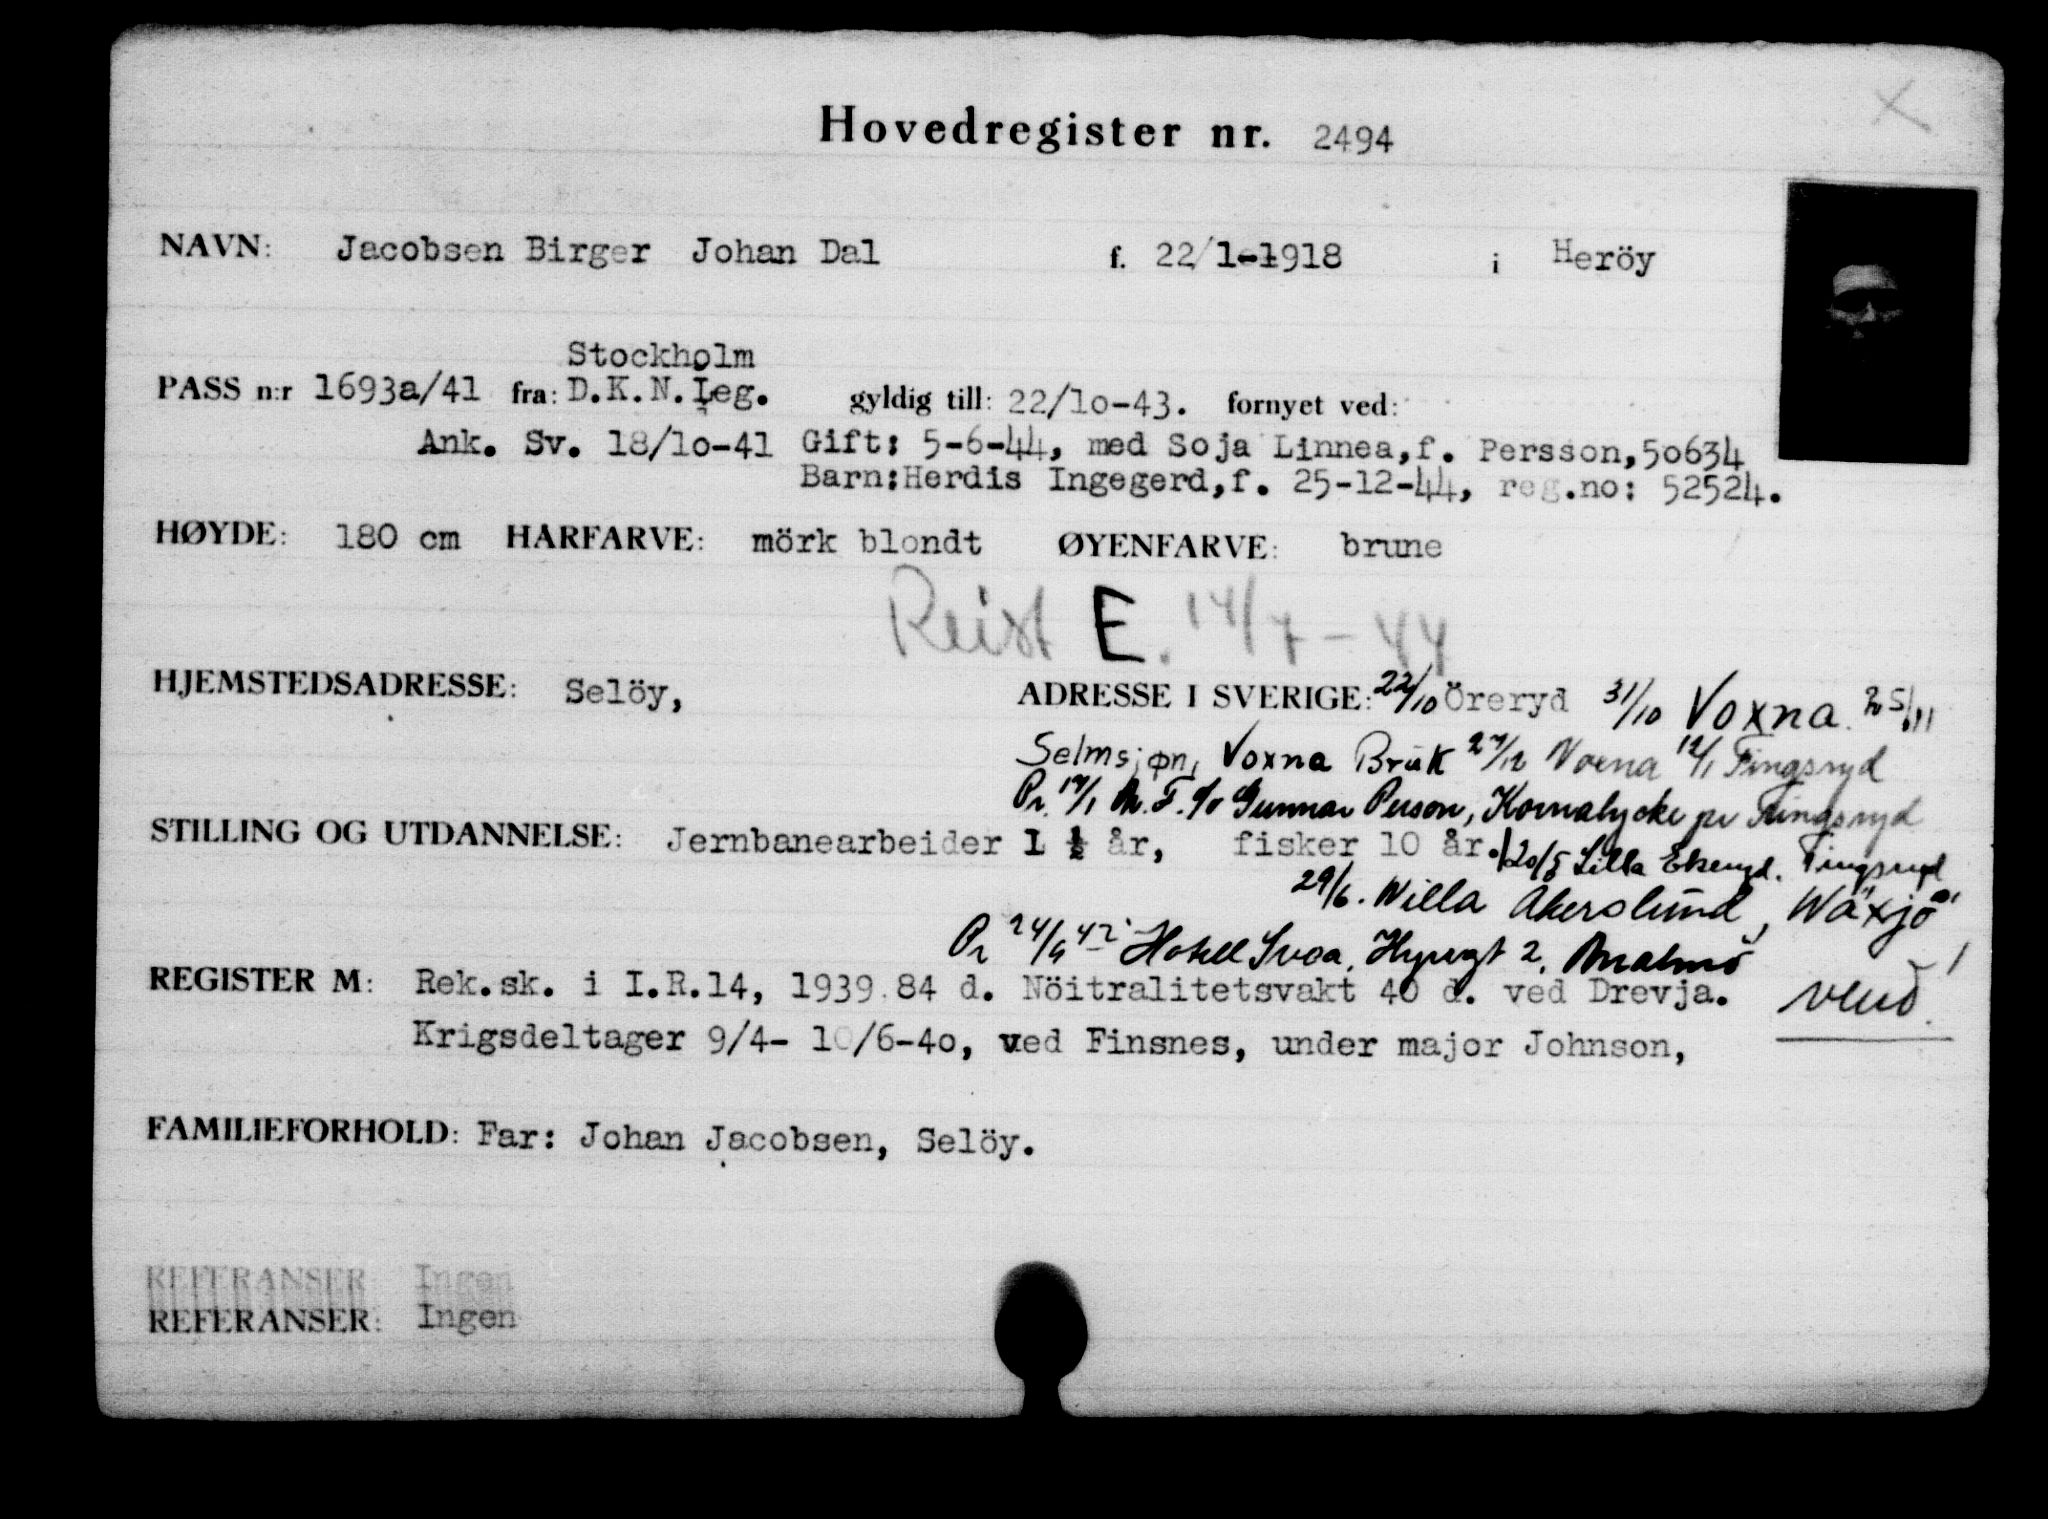 Hovedregister nr. 2494
NAVN: Jacobsen Birger Johan Dal f. 22/1-1918 i Heröy
Stockholm
PASS n:r 1693a/41 fra: D.K.N.Leg. gyldig till: 22/10-43. fornyet ved:
Ank. Sv. 18/10-41 Gift: 5-6-44, med Soja Linnea, f. Persson, 50634
Barn: Herdis Ingegerd, f. 25-12-44, reg.no: 52524.
HØYDE: 180 cm HÅRFARVE: mörk blondt ØYENFARVE: brune
Reist E. 14/7-44
HJEMSTEDSADRESSE: Selöy, ADRESSE I SVERIGE: 22/10 Öreryd 31/10 Voxna. 25/11
Selmsjøn, Voxna Bruk 27/12 Voxna 12/1 Tingsryd
Pr. 17/1 M.F. c/o Gunnar Person, Kornalycke pr Tingsryd
STILLING OG UTDANNELSE: Jernbanearbeider 1 ½ år, fisker 10 år. 20/5 Lilla Tingsryd
29/6. Willa Akerslund, Wäxjö
Pr 24/9 42 Hotell Svea, 2, Malmö
REGISTER M: Rek.sk. i I.R.14, 1939.84 d. Nöitralitetsvakt 40 d. ved Drevja. vend!
Krigsdeltager 9/4- 10/6-40, ved Finsnes, under major Johnson,
FAMILIEFORHOLD: Far: Johan Jacobsen, Selöy.
REFERANSER Ingen
REFERANSER: Ingen